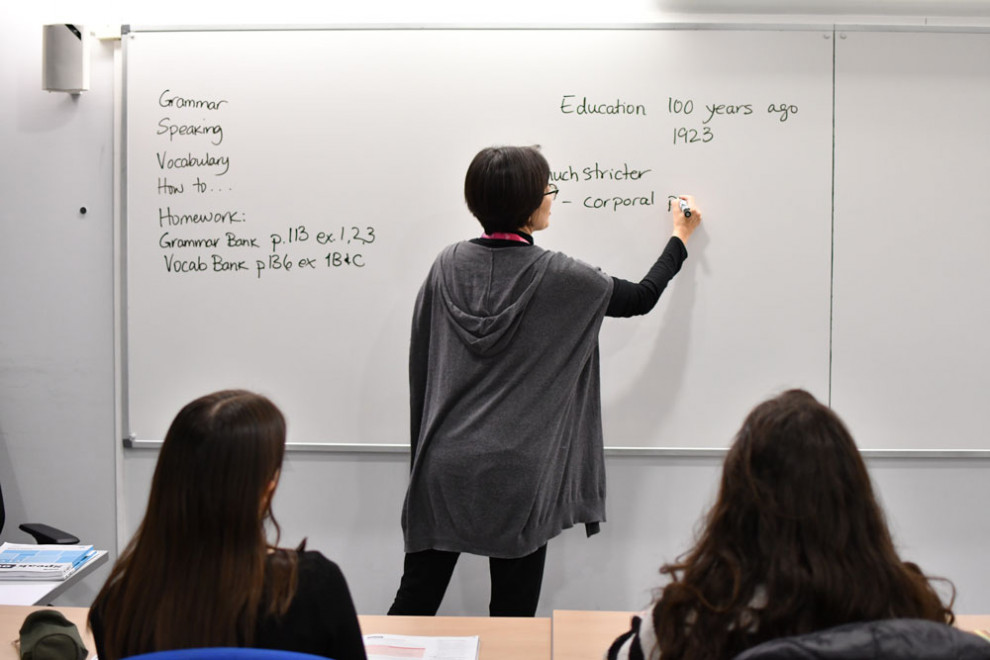 Grammar
Speaking
Vocabulary
How to...
Homework:
Grammar Bank p.113 ex.1,2,3
Vocab Bank p136 ex 1B&C
Education 100 years ago
1923
stricter
- corporal
Speak